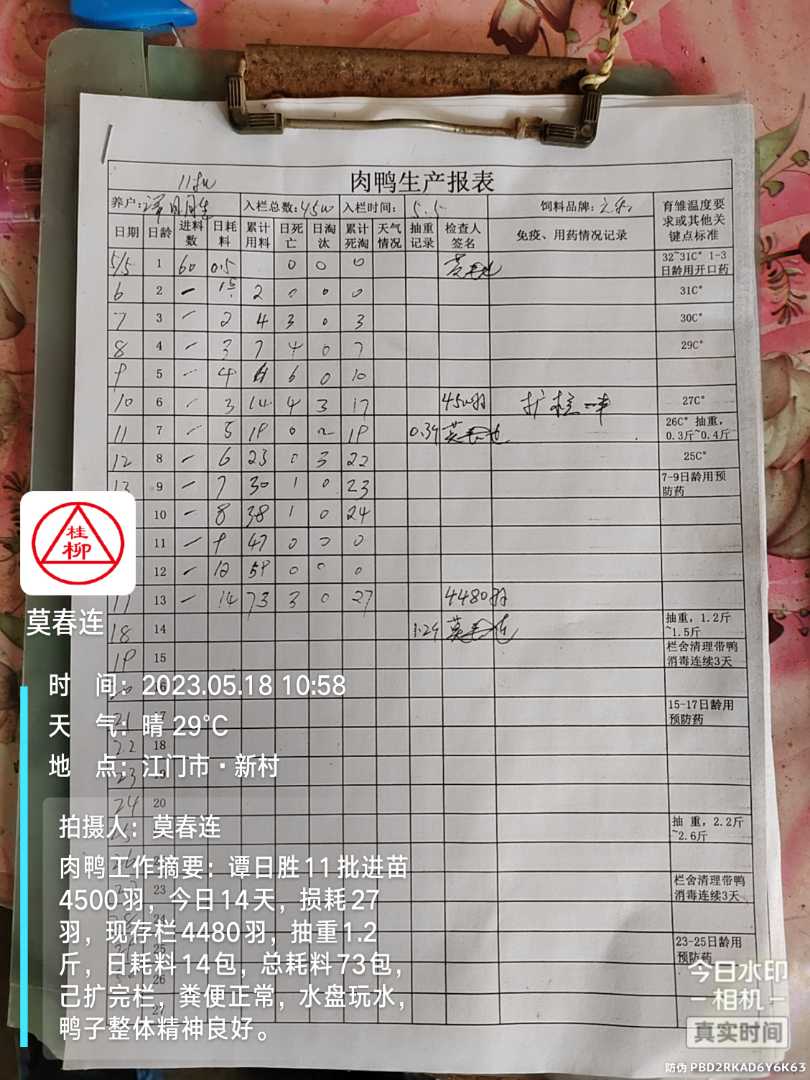 肉鸭生产报表
养户: 入栏总数: 入栏时间: 5.5 饲料品牌: 育雏温度要求或其他关键点标准
日期 日龄 进料数 日耗料 累计用料 日死亡 日淘汰 累计死淘 天气情况 抽重记录 检查人签名 免疫、用药情况记录
5/5 1 60 0.5 0 0 0 32~31C° 1-3日龄用开口药
6 2 - 1.5 2 0 0 0 31C°
7 3 - 2 4 3 0 3 30C°
8 4 - 3 7 4 0 7 29C°
9 5 - 4 11 6 0 10
10 6 - 3 14 4 3 17 450羽 扩栏 27C°
11 7 - 5 19 0 2 19 26C° 抽重，0.3斤~0.4斤
12 8 - 6 23 0 3 22 25C°
13 9 - 7 30 1 0 23 7-9日龄用预防药
10 - 8 38 1 0 24
11 - 9 47 0 0 0
12 - 12 59 0 0 0
17 13 - 14 73 3 0 27 4480羽
18 14 抽重，1.2斤~1.5斤
19 15 栏舍清理带鸭消毒连续3天
16
21 17 15-17日龄用预防药
22 18
23
24 20
抽 重，2.2斤~2.6斤
23 栏舍清理带鸭消毒连续3天
24
25 23-25日龄用预防药
26
27
桂柳
莫春连
时 间：2023.05.18 10:58
天 气：晴 29℃
地 点：江门市·新村
拍摄人：莫春连
肉鸭工作摘要：谭日胜11批进苗
4500羽，今日14天，损耗27
羽，现存栏4480羽，抽重1.2
斤，日耗料14包，总耗料73包，
己扩完栏，粪便正常，水盘玩水，
鸭子整体精神良好。
今日水印
相机
真实时间
防伪 PBD2RKAD6Y6K63